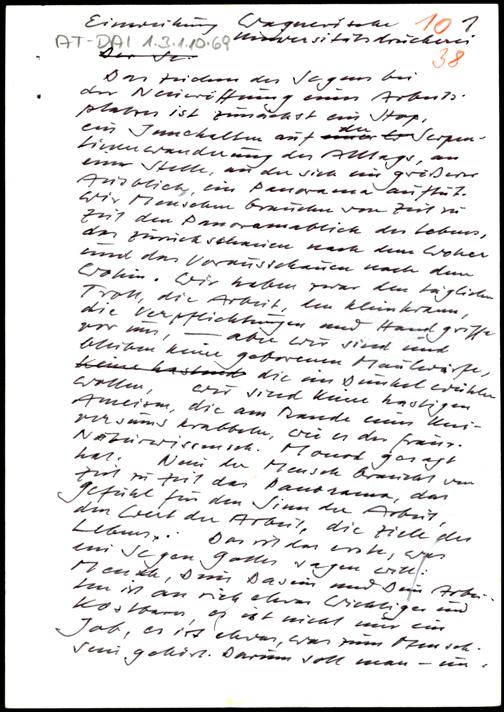 Einweihung Wagnerische 10 1
AT-DAI 1.3.1.10.69 Universitätsdruckerei
Der Se. 38
Das Zeichen des Segens bei
der Neueröffnung eines Arbeits-
platzes ist zunächst ein Stop,
ein Innehalten auf der Serpen-
tinenwanderung des Alltags, an
einer Stelle, an der sich ein größerer
Ausblick, ein Panorama auftut.
Wir Menschen brauchen von Zeit zu
Zeit den Panoramablick des Lebens,
das Zurückschauen nach dem Woher
und das Vorausschauen nach dem
Wohin. Wir haben zwar den täglichen
Trott, die Arbeit, den Kleinkram,
die Verpflichtungen und Handgriffe
vor uns, — aber wir sind und
bleiben keine geborenen Maulwürfe,
keine die im Dunkel wühlen
wollen, wir sind keine hastigen
Ameisen, die am Rande eines Uni-
versums krabbeln, wie es der franz.
Naturwissensch. Monod gesagt
hat. Nein der Mensch braucht von
Zeit zu Zeit das Panorama, das
Gefühl für den Sinn der Arbeit,
den Wert der Arbeit, die Ziele des
Lebens. Das ist das erste, was
ein Segen Gottes sagen will:
Mensch, Dein Dasein und Dein Arbei-
ten ist an sich etwas Wichtiges und
Kostbares, es ist nicht nur ein
Job, es ist etwas, was zum Mensch-
sein gehört. Darum soll man – im